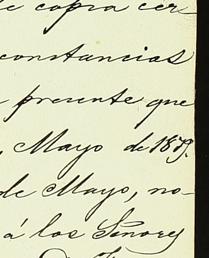 de copia cer-
constancias
presente que
Mayo de 189
de Mayo, no-
á los Señores